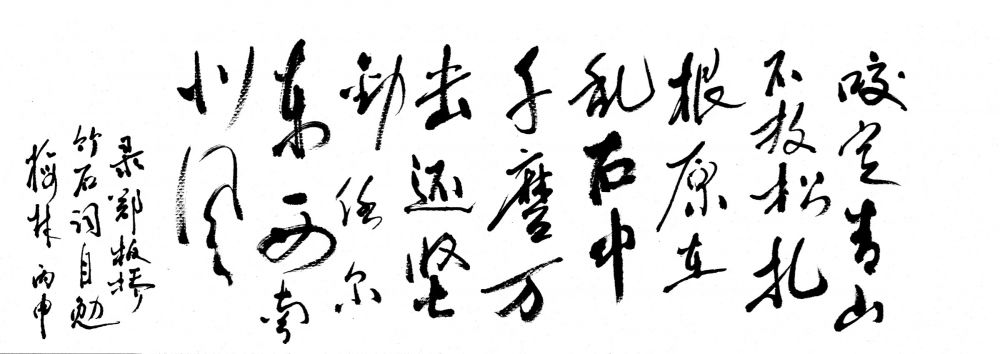 咬定青山
不放松扎
根原在
乱石中
千磨万
击还坚
劲任尔
东西南
北风
录郑板桥
竹石词自勉
梅林 丙申